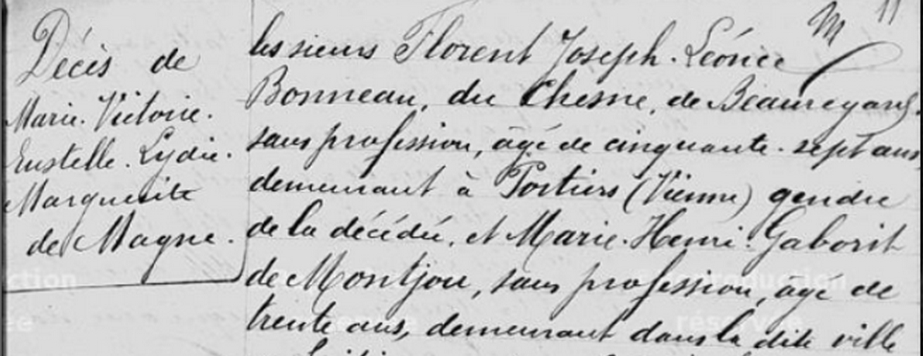 Décès de
Marie. Victoire.
Eustelle. Lydie.
Marguerite
de Magne.
les sieurs Florent Joseph. Léonce
Bonneau, du Chesne, de Beauregard,
sans profession, âgé de cinquante. sept ans
demeurant à Poitiers (Vienne) gendre
de la décédée, et Marie. Henri. Gaborit
de Montjou, sans profession, âgé de
trente ans, demeurant dans la dite ville